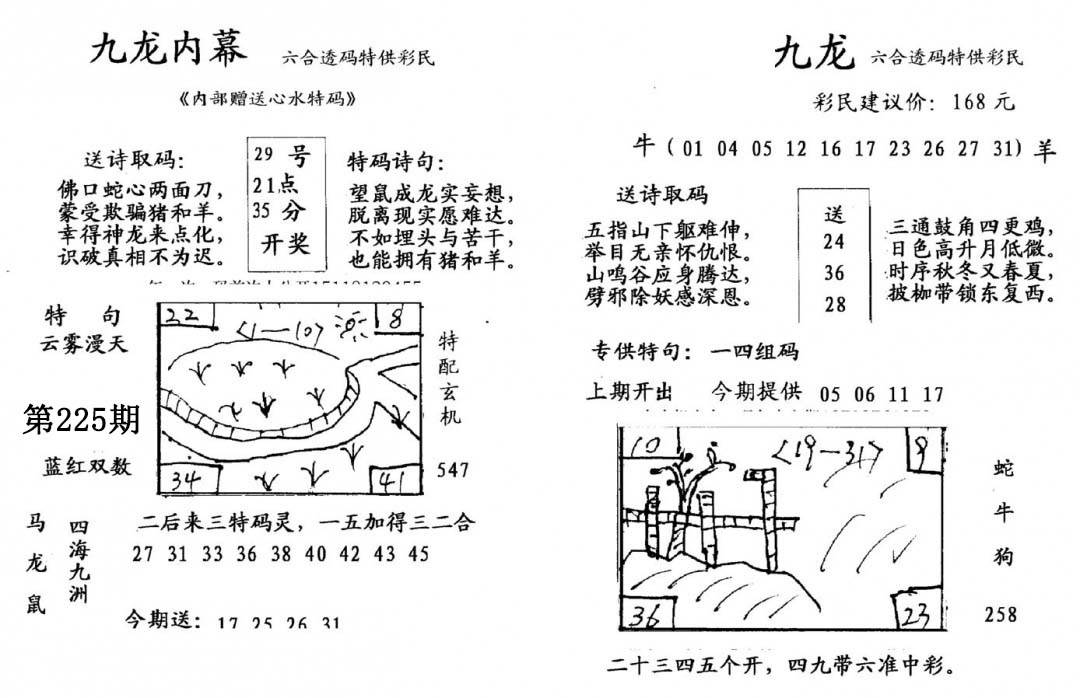 九龙内幕 六合透码特供彩民
《内部赠送心水特码》
送诗取码:
佛口蛇心两面刀，
蒙受欺骗猪和羊。
幸得神龙来点化，
识破真相不为迟。
29 号
21点
35 分
开奖
特码诗句:
望鼠成龙实妄想，
脱离现实愿难达。
不如埋头与苦干，
也能拥有猪和羊。
特 句
云雾漫天
第225期
蓝红双数
22
<1—10>
8
34
41
特配玄机
547
马龙鼠
四海九洲
二后来三特码灵，一五加得三二合
27 31 33 36 38 40 42 43 45
今期送: 17 25 26 31
九龙 六合透码特供彩民
彩民建议价: 168 元
牛 (01 04 05 12 16 17 23 26 27 31) 羊
送诗取码
五指山下躯难伸，
举目无亲怀仇恨。
山鸣谷应身腾达，
劈邪除妖感深恩。
送
24
36
28
三通鼓角四更鸡，
日色高升月低微。
时序秋冬又春夏，
披枷带锁东复西。
专供特句: 一四组码
上期开出 今期提供 05 06 11 17
10
<19—31>
9
36
23
蛇牛狗
258
二十三四五个开，四九带六准中彩。